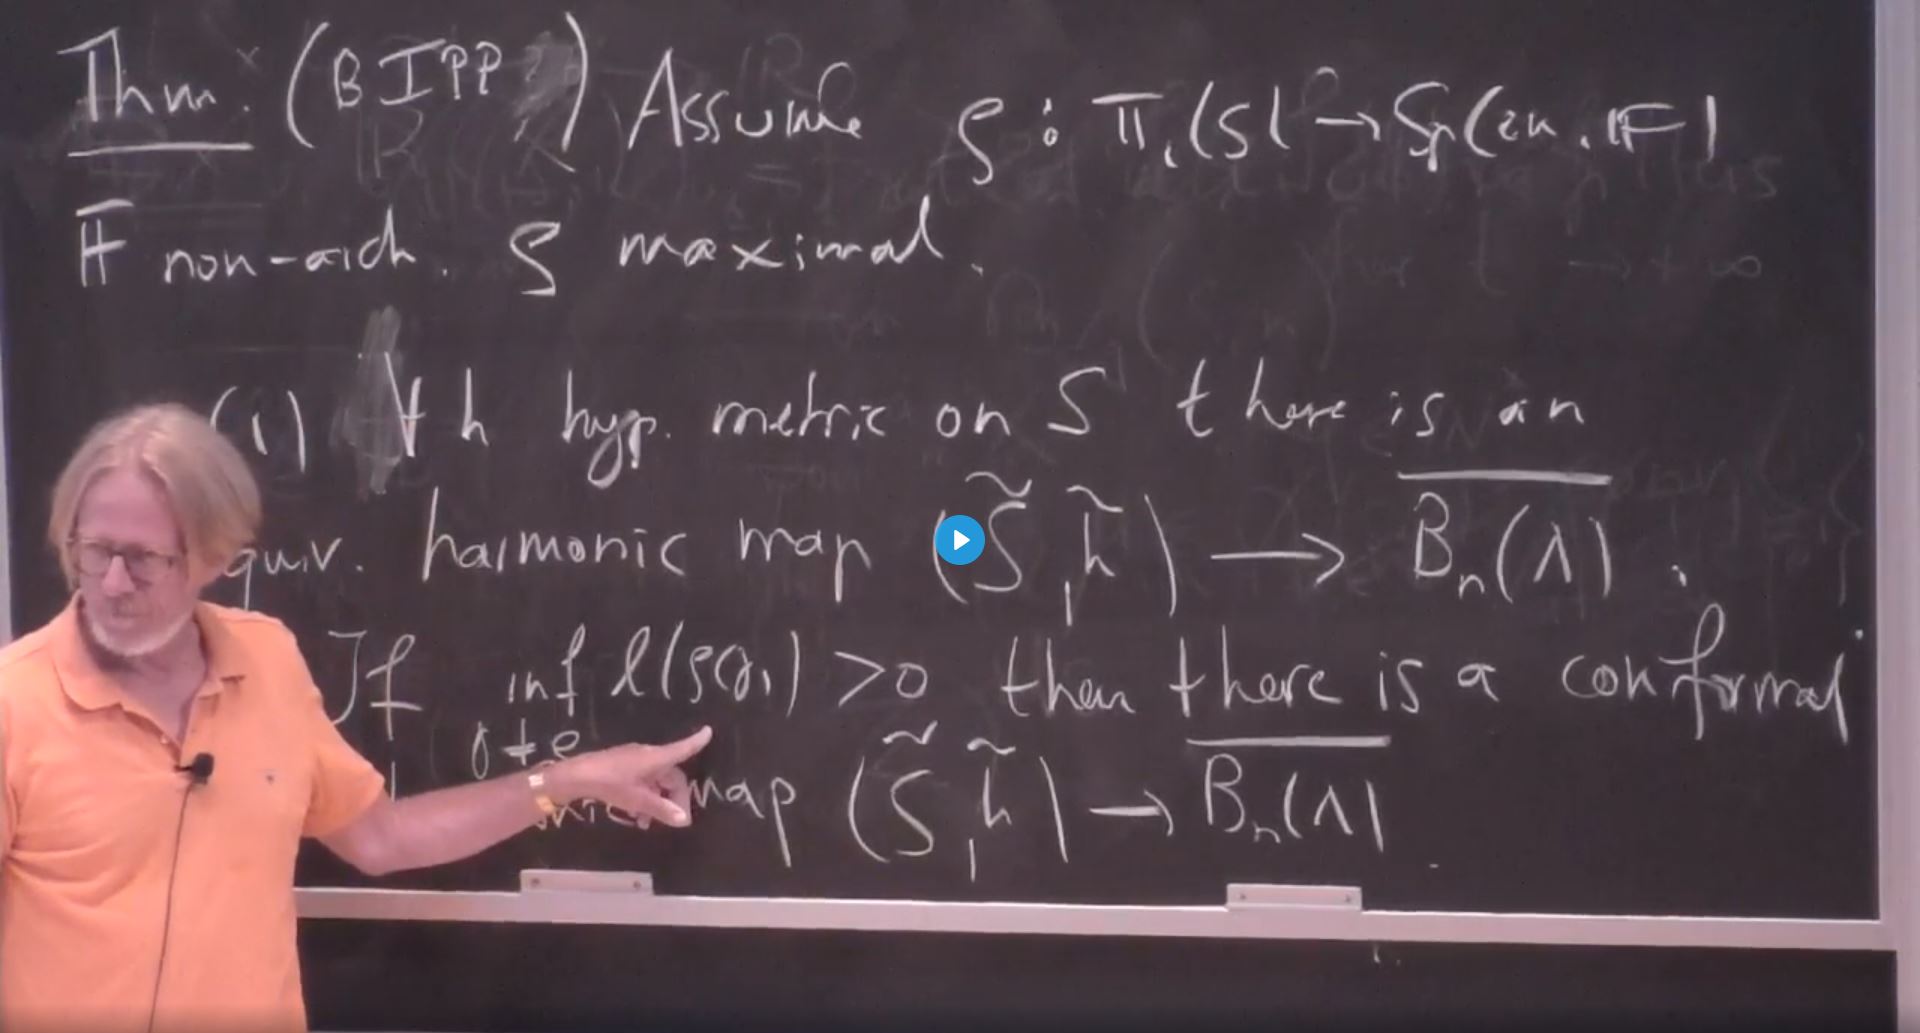 Thm. (BIPP) Assume ρ : π₁(S) → Sp(2n, 𝔽)
𝔽 non-arch. ρ maximal.
(1) ∀ h hyp. metric on S there is an
equiv. harmonic map (S̃, h̃) → \overline{Bₙ(Λ)}.
If inf ℓ(ρ(γ)) > 0 then there is a conformal
γ ≠ e
map (S̃, h̃) → \overline{Bₙ(Λ)}.